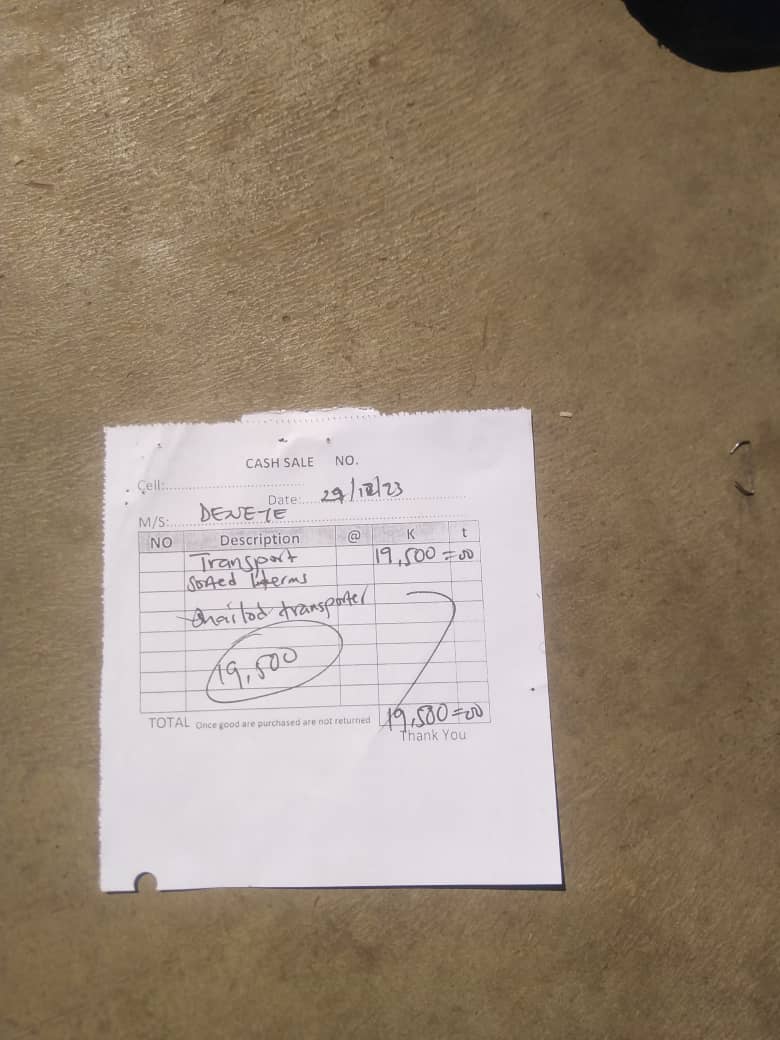 CASH SALE NO.
Cell:
Date: 29/12/23
M/S: DENEJE
NO Description @ K t
Transport 19,500=00
Sorted Iterms
transporter
19,500
TOTAL Once good are purchased are not returned 19,500=00
Thank You